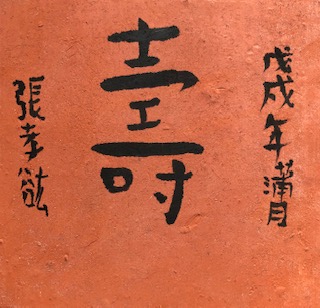 戊戌年滿月
壽
張孝